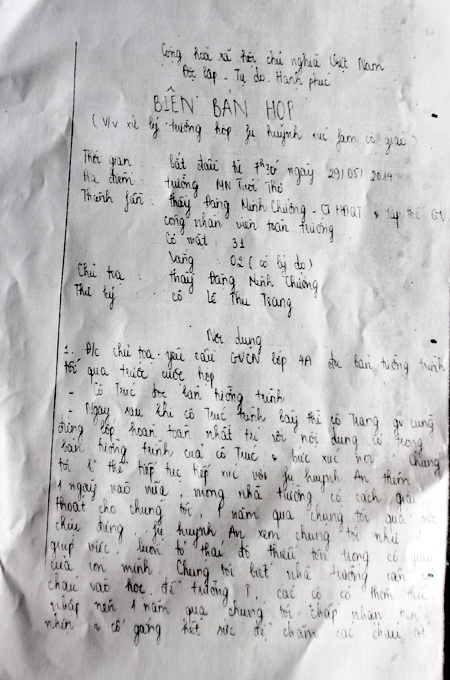 Cộng hoà xã hội chủ nghĩa Việt Nam
Độc lập - Tự do - Hạnh phúc
BIÊN BẢN HỌP
( V/v xử lý trường hợp fụ huynh xúc fạm cô giáo )
Thời gian : bắt đầu từ 7h30' ngày 29/05/2014
Địa điểm : trường MN Tuổi Thơ
Thành fần : thầy Đặng Minh Chưởng - CT HĐQT & tập thể GV
công nhân viên toàn trường
Có mặt 31
Vắng : 02 ( có lý do )
Chủ tọa : thầy Đặng Minh Chưởng
Thư ký : cô Lê Thu Trang
Nội dung
1. Đ/c chủ tọa yêu cầu GVCN lớp 4A đọc bản tường trình
tối qua trước cuộc họp
- Cô Trúc đọc bản tường trình
- Ngay sau khi cô Trúc trình bày thì cô Trang gv cùng
đứng lớp hoàn toàn nhất trí với nội dung có trong
bản tường trình của cô Trúc & bức xúc nói : Chúng
tôi k thể tiếp tục tiếp xúc với fụ huynh An thêm
1 ngày nào nữa, mong nhà trường có cách giải
thoát cho chúng tôi, 1 năm qua chúng tôi quá sức
chịu đựng, fụ huynh An xem chúng tôi như
giúp việc, luôn tỏ thái độ thiếu tôn trọng cô giáo
của con mình. Chúng tôi biết nhà trường cần có
cháu vào học để trường, các cô có thêm thu
nhập nên 1 năm qua chúng tôi chấp nhận
nhịn & cố gắng hết sức để chăm các cháu